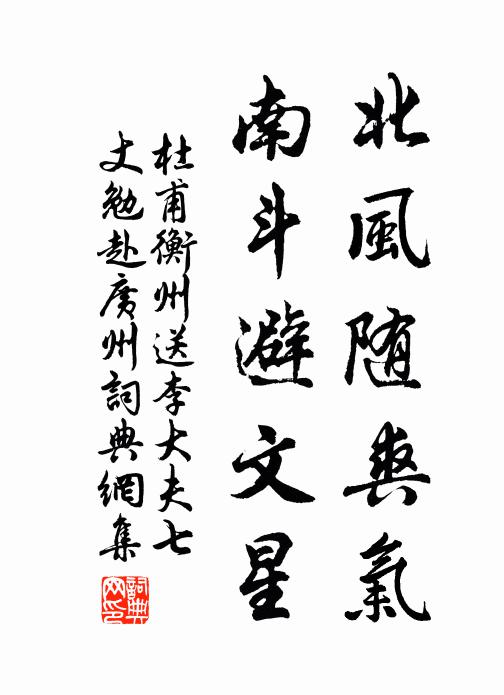 北風随爽氣
南斗避文星
杜甫衡州送李大夫七
丈勉赴廣州詞典網集
詞典网印